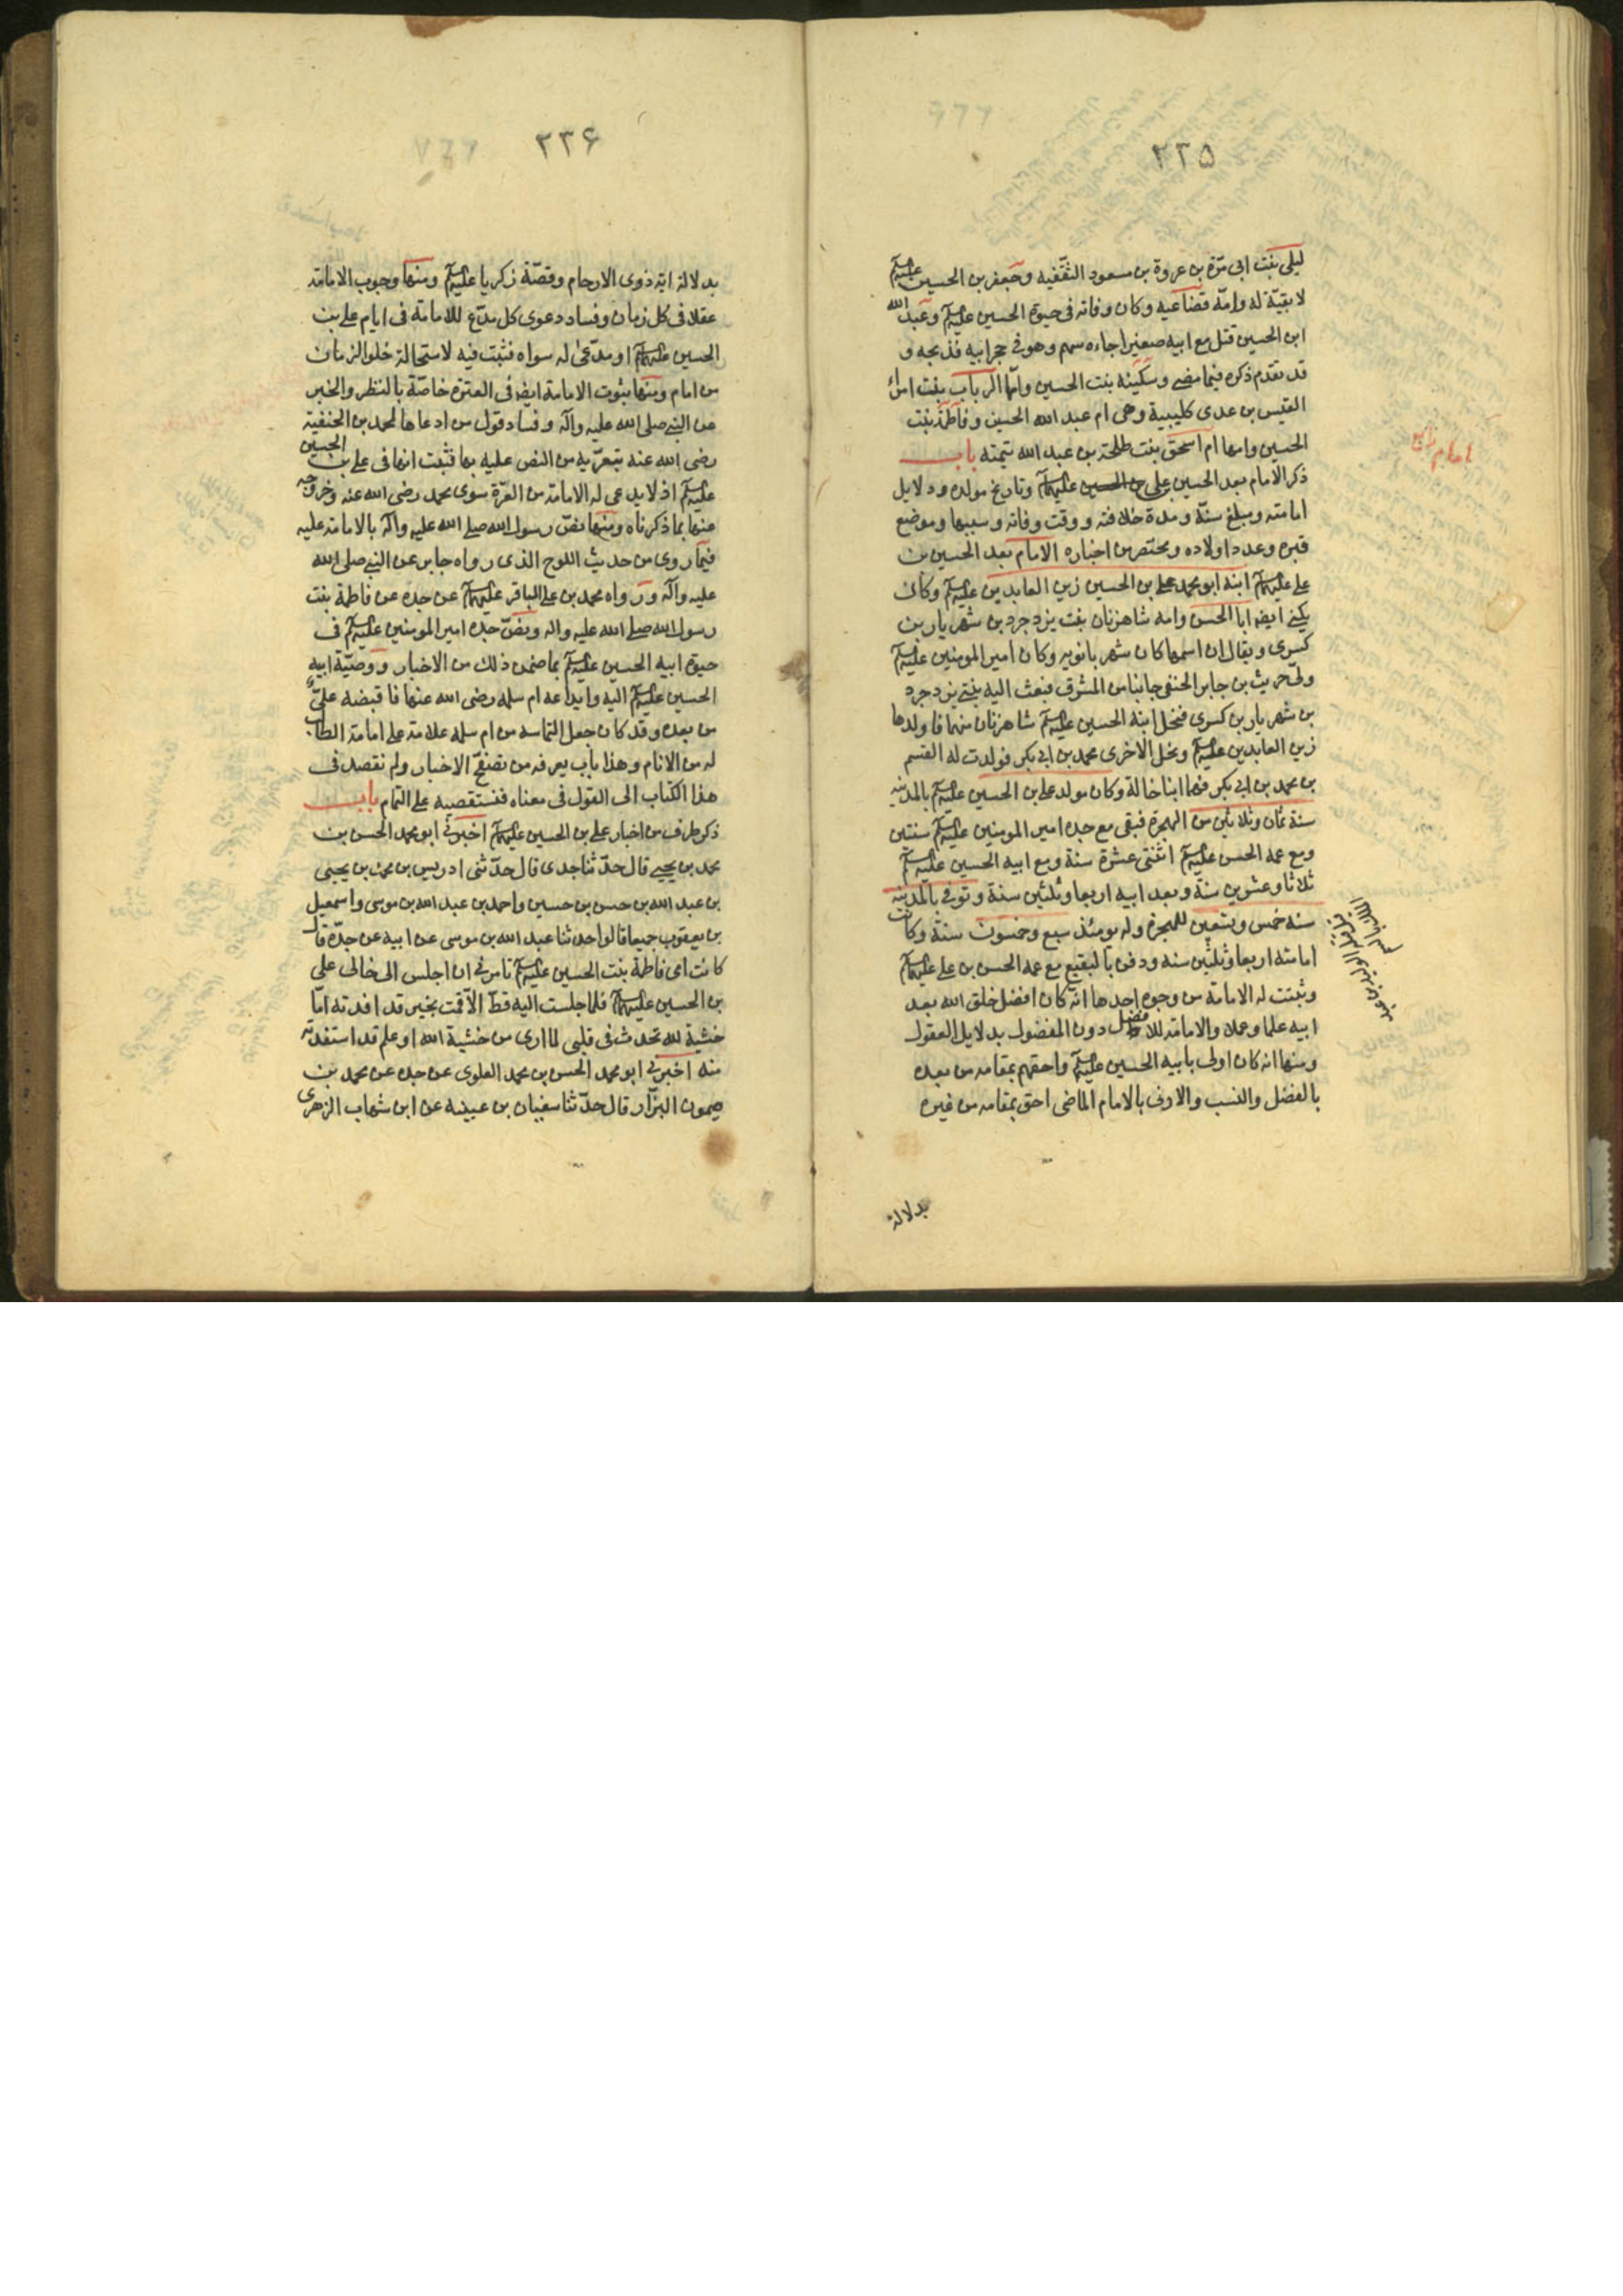 ٢٢٥
ليلى بنت ابى مرّة بن عروة بن مسعود الثقفيه وجعفر بن الحسين عليهم
لا بقيّة له وامّه قضاعيه وكان وفاته فى حيوة الحسين عليه السلم وعبد الله
ابن الحسين قتل مع ابيه صغيرا جاءه سهم وهو فى حجر ابيه فذبحه و
قد تقدم ذكره فيما مضى وسكينه بنت الحسين وامّها الرباب بنت امرئ
القيس بن عدى كليبية وهى ام عبد الله الحسين وفاطمة بنت
الحسين وامها ام اسحق بنت طلحة بن عبد الله تيميته باب
ذكر الامام بعد الحسين على بن الحسين عليهما السلم وتاريخ مولده ودلايل
امامته ومبلغ سنّه ومدة خلافته ووقت وفاته وسببها وموضع
قبره وعدد اولاده ومختصر من اخباره الامام بعد الحسين بن
على عليهما السلم ابنه ابو محمد على بن الحسين زين العابدين عليه السلم وكان
يكنى ايضا ابا الحسن وامه شاهزنان بنت يزدجرد بن شهريار بن
كسرى ويقال ان اسمها كان شهربانويه وكان امير المومنين عليه السلم
ولّى حريث بن جابر الحنفى جانبا من المشرق فبعث اليه بنتى يزدجرد
بن شهريار بن كسرى فنحل ابنه الحسين عليه السلم شاهزنان منهما فاولدها
زين العابدين عليه السلم ونحل الاخرى محمد بن ابى بكر فولدت له القسم
بن محمد بن ابى بكر فهما ابنا خالة وكان مولد على بن الحسين عليه السلم بالمدينه
سنة ثمان وثلاثين من الهجرة فبقى مع جده امير المومنين عليه السلم سنتين
ومع عمه الحسن عليه السلم اثنتى عشرة سنة ومع ابيه الحسين عليه السلم
ثلاثا وعشرين سنة وبعد ابيه اربعا وثلثين سنة وتوفى بالمدينه
سنه خمس وتسعين للهجرة وله يومئذ سبع وخمسون سنة وكانت
امامته اربعا وثلثين سنه ودفن بالبقيع مع عمه الحسن بن على عليهما السلم
وثبتت له الامامة من وجوه احدها انّه كان افضل خلق الله بعد
ابيه علما وعملا والامامة للافضل دون المفضول بدلايل العقول
ومنها انه كان اولى بابيه الحسين عليه السلم واحقهم بمقامه من بعده
بالفضل والنسب والاولى بالامام الماضى احق بمقامه من غيره
بدلالة
٢٢۶
بدلالة اية ذوى الارحام وقصّة زكريا عليه السلم ومنها وجوب الامامة
عقلا فى كل زمان وفساد دعوى كل مدّع للامامة فى ايام على بن
الحسين عليهما السلم او مدّعى له سواه فثبت فيه لاستحالة خلو الزمان
من امام ومنها ثبوت الامامة ايضا فى العترة خاصّة بالنظر والخبر
عن النبى صلى الله عليه وآله وفساد قول من ادعاها لمحمد بن الحنفية
رضى الله عنه بتعرّيه من النص عليه بها فثبت انها فى على بن الحسين
عليه السلم اذ لا يدعى له الامامة من العترة سوى محمد رضى الله عنه وخروجه
عنها بما ذكرناه ومنها نصّ رسول الله صلى الله عليه وآله بالامامة عليه
فيما روى من حديث اللوح الذى رواه جابر عن النبى صلى الله
عليه وآله ورواه محمد بن على الباقر عليهما السلم عن جده عن فاطمة بنت
رسول الله صلى الله عليه واله ونصّ جده امير المومنين عليه السلم فى
حيوة ابيه الحسين عليه السلم بما ضمن ذلك من الاخبار ووصيّة ابيه
الحسين عليه السلم اليه وايداعه ام سلمه رضى الله عنها فاقبضه علىّ
من بعده وقد كان جعل التماسه من ام سلمه علامة على امامة الطالب
له من الانام وهذا باب يعرفه من تصفّح الاخبار ولم نقصد فى
هذا الكتاب الى القول فى معناه فنستقصيه على التمام باب
ذكر طرف من اخبار على بن الحسين عليهما السلم اخبرنى ابو محمد الحسن بن
محمد بن يحيى قال حدّثنا جدى قال حدّثنى ادريس بن محمد بن يحيى
بن عبد الله بن حسن بن حسين واحمد بن عبد الله بن موسى واسمعيل
بن يعقوب جميعا قالوا حدثنا عبد الله بن موسى عن ابيه عن جدّه قال
كانت امى فاطمة بنت الحسين عليه السلم تامرنى ان اجلس الى خالى على
بن الحسين عليهما السلم فلما جلست اليه قطّ الاّ قمت بخير قد افدته امّا
خشية لله تحدث فى قلبى لما ارى من خشية الله او علم قد استفدته
منه اخبرنى ابو محمد الحسن بن محمد العلوى عن جده عن محمد بن
ميمون البزّاز قال حدّثنا سفيان بن عيينه عن ابن شهاب الزهرى